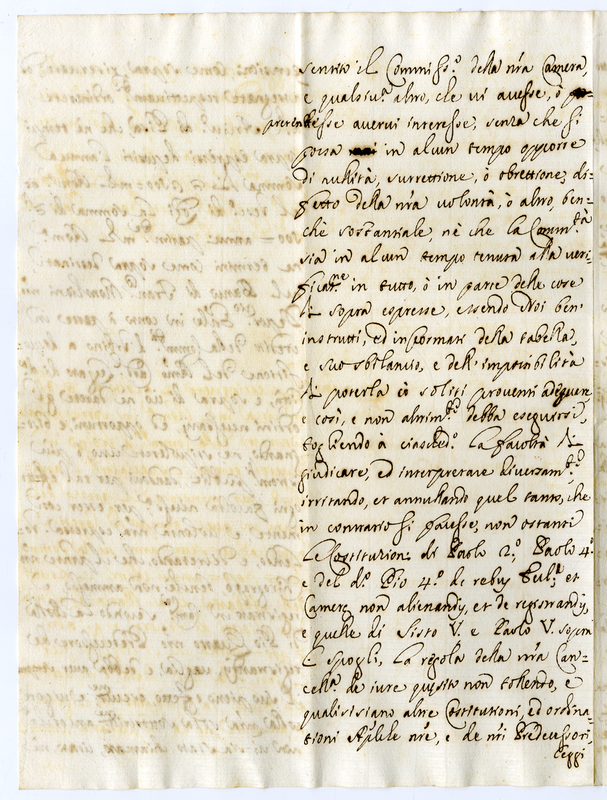 sentito il Commiss.º della nr̃a Camera,
e qualsiu.ª altro, che vi avesse, ò
pretendesse avervi interesse, senza che si
possa in alcun tempo opporre
di nullità, surrettione, ò obrettione, di=
fetto della nr̃a volontà, ò altro, ben=
chè sostanziale, nè che la Comm.tà
sia in alcun tempo tenuta alla veri=
ficat.ne in tutto, ò in parte delle cose
di sopra espresse, essendo Noi ben
instrutti, ed informati della tabella,
e suo sbilancio, e dell' impossibilità
di poterla co soliti proventi adequare
e così, e non altrim.te debba eseguirsi,
togliendo à ciasched.º la facoltà di
giudicare, ed interpretare diversam.te,
irritando, et annullando quel tanto, che
in contrario si facesse, non ostanti
le Costituzioni di Paolo 2.º, Paolo 4.º
e del d.º Pio 4.º de rebus Eccl.ę et
Camerę non alienandis, et de registrandis,
e quelle di Sisto V. e Paolo V. sopra
li spogli, la regola della nr̃a Can=
cell.ª de iure quęsito non tollendo, e
qualsisiano altre Costitutioni, ed ordina=
tioni Aplĩche nr̃e, e de nr̃i Predecessori,
leggi